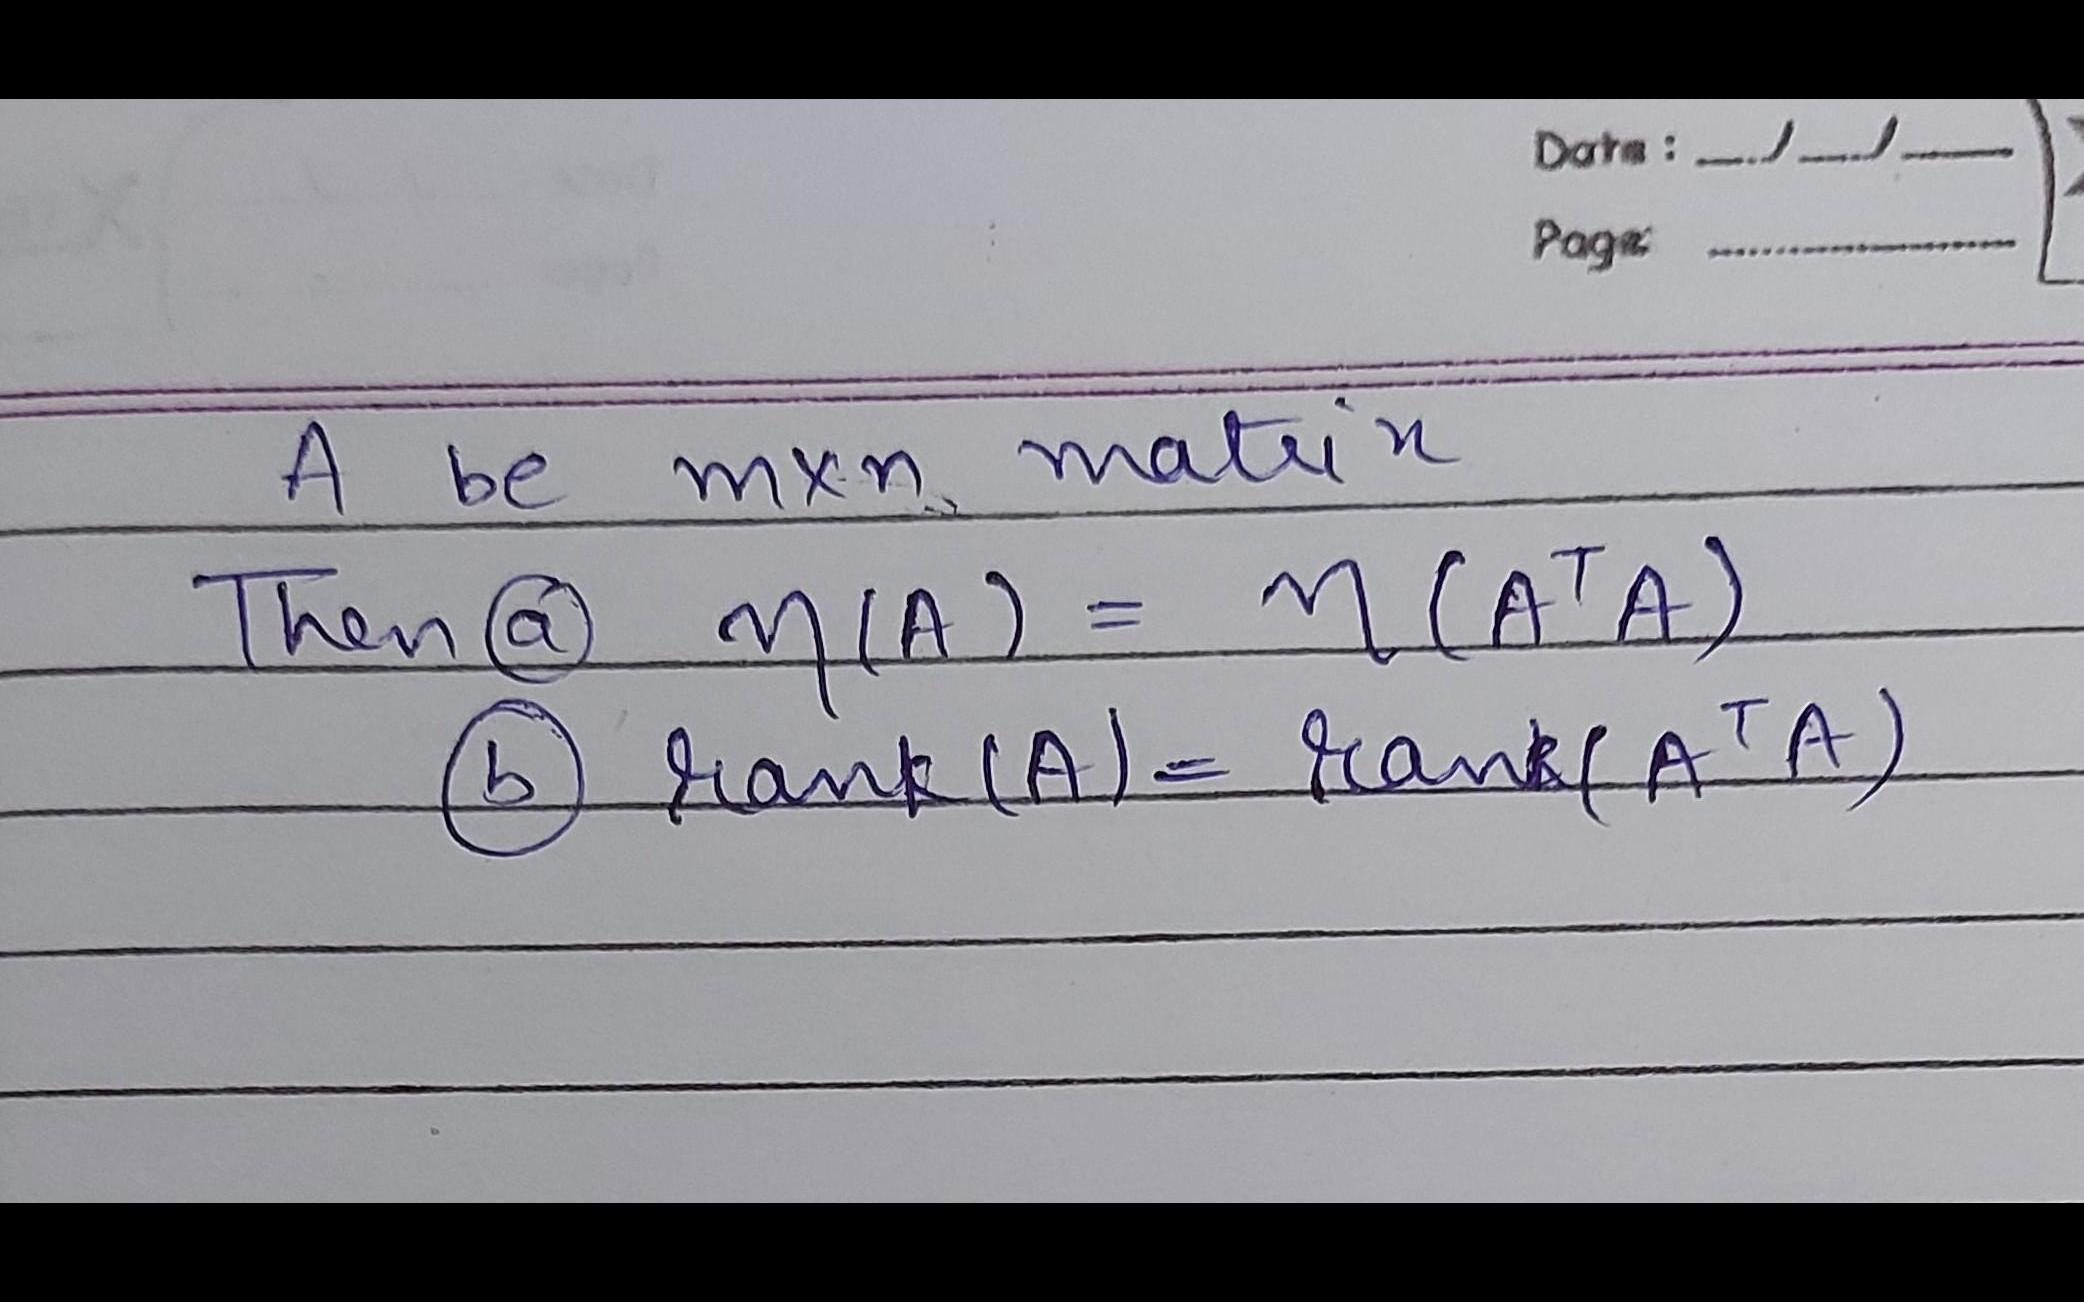 Date : __/__/__
Page ..................
A be m×n matrix
Then ⓐ η(A) = η(AᵀA)
ⓑ rank(A) = rank(AᵀA)